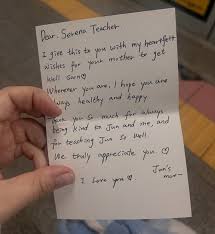 Dear. Serena Teacher
I give this to you with my heartfelt
wishes for your mother to get
well soon♡
Wherever you are, I hope you are
always healthy and happy
you so much for always
being kind to Jun and me, and
for teaching Jun so well.
We truly appreciate you. ♡
I love you ♡. Jun's
mom~